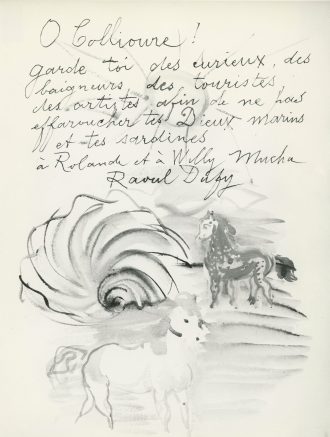 O Collioure !
garde toi des curieux, des
baigneurs des touristes,
des artistes afin de ne pas
effaroucher tes Dieux marins
et tes sardines
à Rolande et à Willy Mucha
Raoul Dufy